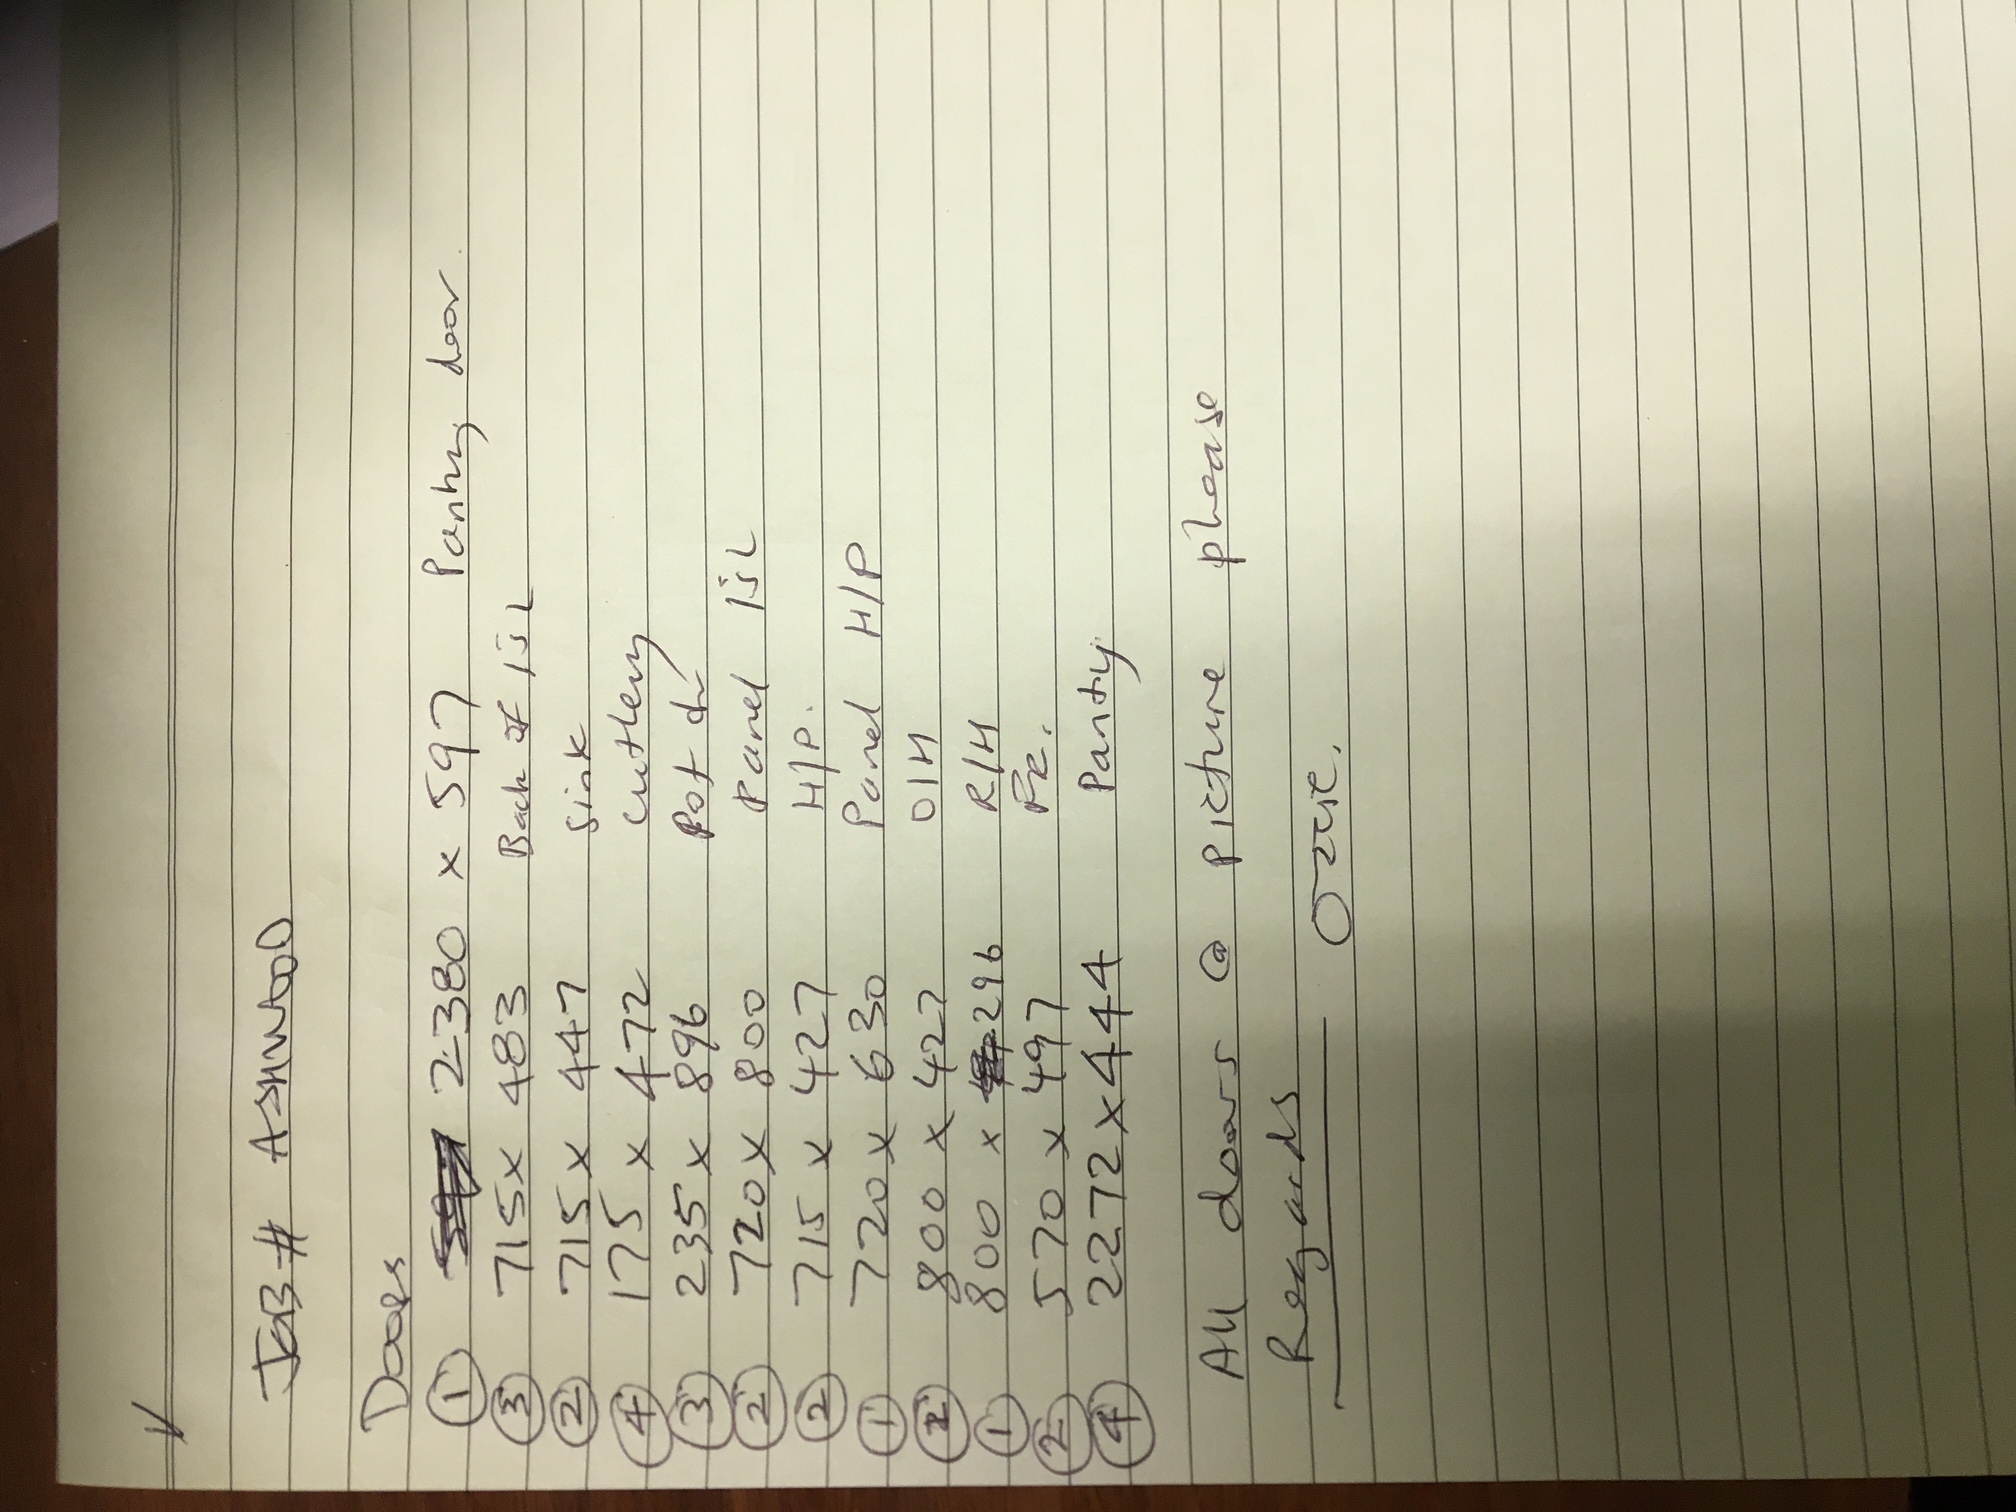 JOB# ASHWOOD
Doors
① 2380 x 597 Pantry door
③ 715 x 483 Back of ISL
② 715 x 447 Sink
④ 175 x 472 Cutlery
③ 235 x 896 Pot dr
② 720 x 800 Panel ISL
② 715 x 427 H/P.
① 720 x 630 Panel H/P
800 x 427 O/H
① 800 x 296 R/H
② 570 x 497 Fr.
④ 2272 x 444 Panty
All doors @ picture please
Regards
Ozzie.